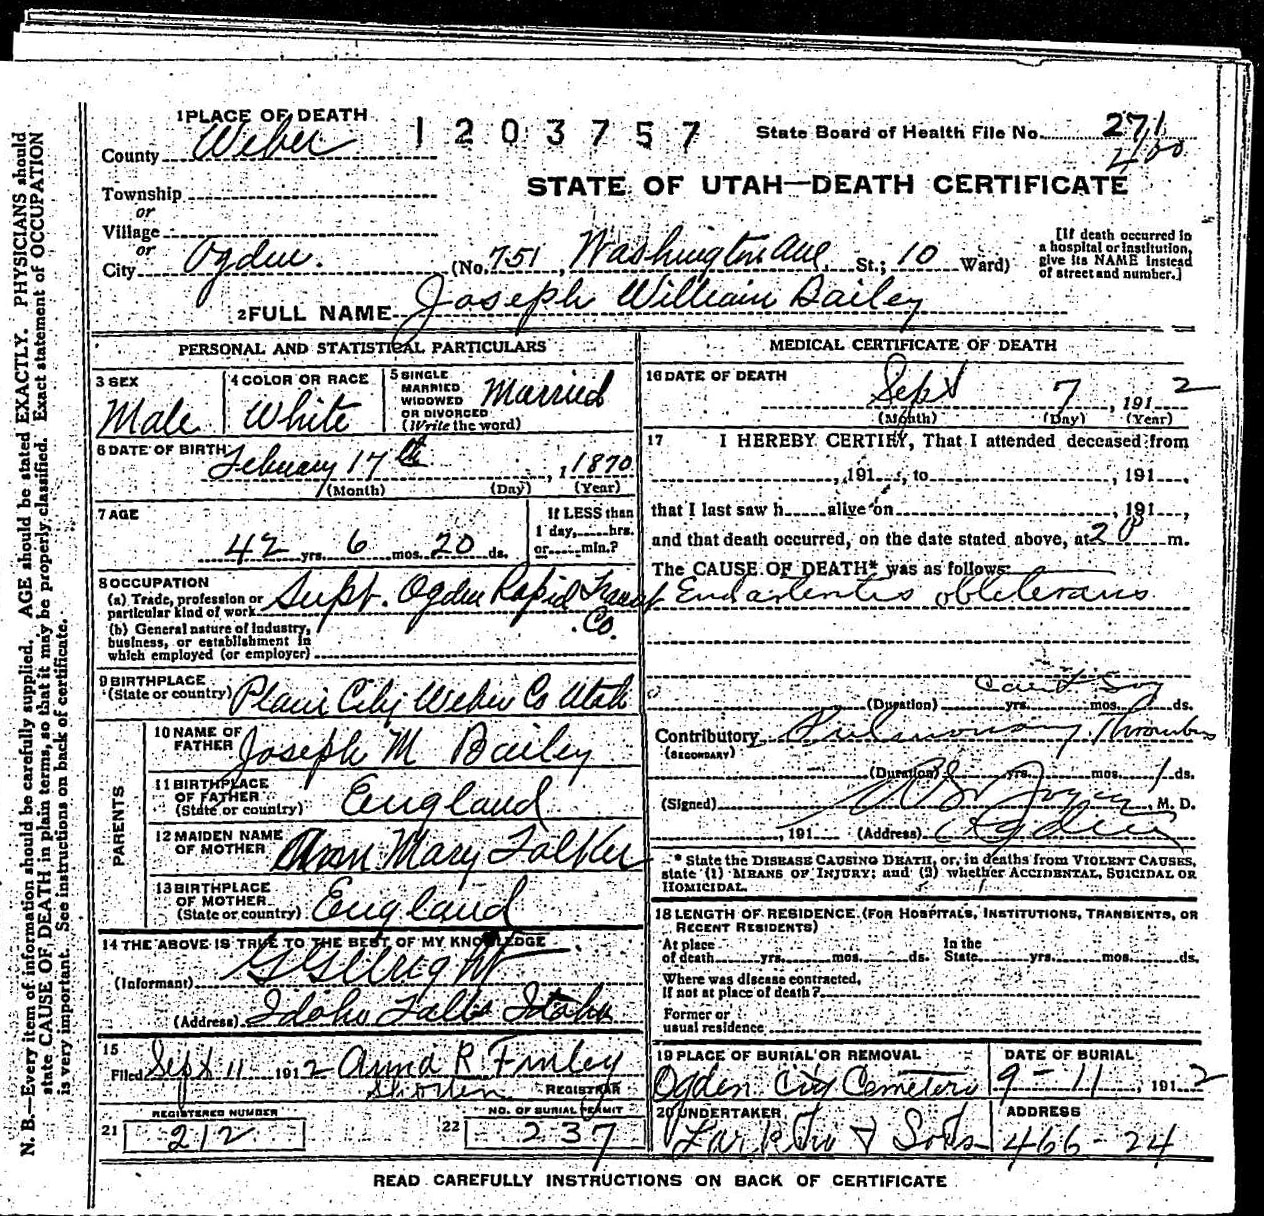 1 PLACE OF DEATH
1203757
State Board of Health File No. 271
400
County Weber
STATE OF UTAH—DEATH CERTIFICATE
Township
or
Village
or
City Ogden. (No. 751, Washington Ave St.; 10 Ward)
[If death occurred in
a hospital or institution,
give its NAME instead
of street and number.]
2 FULL NAME Joseph William Bailey
PERSONAL AND STATISTICAL PARTICULARS
3 SEX
Male
4 COLOR OR RACE
White
5 SINGLE
MARRIED
WIDOWED
OR DIVORCED
(Write the word)
Married
6 DATE OF BIRTH
February 17th, 1870
(Month) (Day) (Year)
7 AGE
42 yrs. 6 mos. 20 ds.
If LESS than
1 day, hrs.
or min.?
8 OCCUPATION
(a) Trade, profession or
particular kind of work Supt. Ogden Rapid Transit
Co.
(b) General nature of industry,
business, or establishment in
which employed (or employer)
9 BIRTHPLACE
(State or country) Plain City Weber Co Utah
PARENTS
10 NAME OF
FATHER Joseph M Bailey
11 BIRTHPLACE
OF FATHER
(State or country) England
12 MAIDEN NAME
OF MOTHER Ann Mary Falker
13 BIRTHPLACE
OF MOTHER
(State or country) England
14 THE ABOVE IS TRUE TO THE BEST OF MY KNOWLEDGE
(Informant) G G Wright
(Address) Idaho Falls Idaho
15
Filed Sept 11 1912 Anna R. Finley
REGISTRAR
REGISTERED NUMBER
21 212
NO. OF BURIAL PERMIT
22 237
MEDICAL CERTIFICATE OF DEATH
16 DATE OF DEATH
Sept 7, 1912
(Month) (Day) (Year)
17 I HEREBY CERTIFY, That I attended deceased from
, 191 , to , 191 ,
that I last saw h alive on , 191 ,
and that death occurred, on the date stated above, at 2 m.
The CAUSE OF DEATH* was as follows:
Endarteritis obliterans
Can't Say
(Duration) yrs. mos. ds.
Contributory Pulmonary Thrombus
(SECONDARY)
(Duration) yrs. mos. 1 ds.
(Signed) , M. D.
, 191 (Address) Ogden
* State the DISEASE CAUSING DEATH, or, in deaths from VIOLENT CAUSES,
state (1) MEANS OF INJURY; and (2) whether ACCIDENTAL, SUICIDAL OR
HOMICIDAL.
18 LENGTH OF RESIDENCE (FOR HOSPITALS, INSTITUTIONS, TRANSIENTS, OR
RECENT RESIDENTS)
At place
of death yrs. mos. ds.
In the
State yrs. mos. ds.
Where was disease contracted,
If not at place of death?
Former or
usual residence
19 PLACE OF BURIAL OR REMOVAL
Ogden City Cemetery
DATE OF BURIAL
9-11, 1912
20 UNDERTAKER
Larkin & Sons
ADDRESS
466-24
READ CAREFULLY INSTRUCTIONS ON BACK OF CERTIFICATE
N. B.—Every item of information should be carefully supplied. AGE should be stated EXACTLY. PHYSICIANS should
state CAUSE OF DEATH in plain terms, so that it may be properly classified. Exact statement of OCCUPATION
is very important. See instructions on back of certificate.